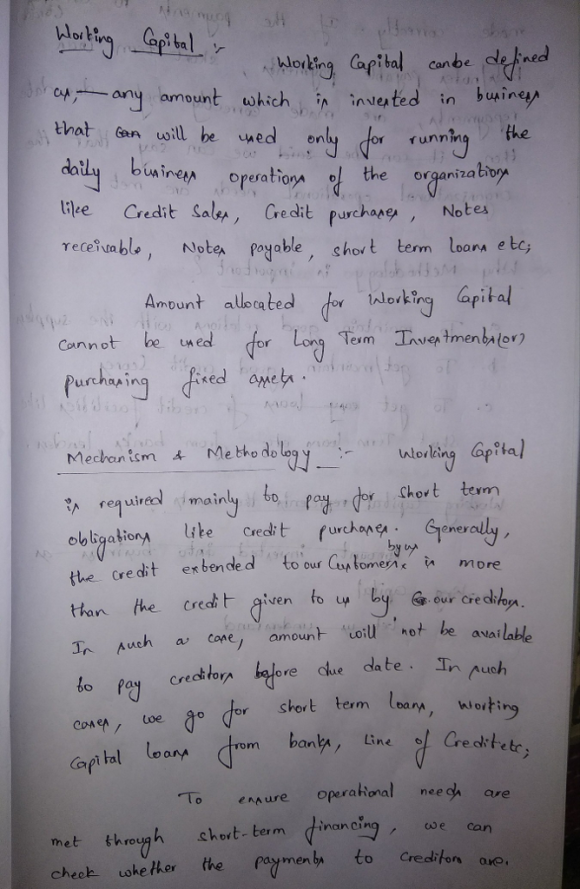 Working Capital :-
Working Capital canbe defined
as, — any amount which is invested in business
that can will be used only for running the
daily business operations of the organizations
like Credit Sales, Credit purchases, Notes
receivable, Notes payable, short term loans etc;
Amount allocated for Working Capital
cannot be used for Long Term Investments(or)
purchasing fixed assets.
Mechanism & Methodology :- Working Capital
is required mainly to pay for short term
obligations like credit purchases. Generally,
the credit extended to our Customers by us is more
than the credit given to us by our creditors.
In such a case, amount will not be available
to pay creditors before due date. In such
cases, we go for short term loans, working
capital loans from banks, Line of Credit etc;
To ensure operational needs are
met through short-term financing, we can
check whether the payments to Creditors are.